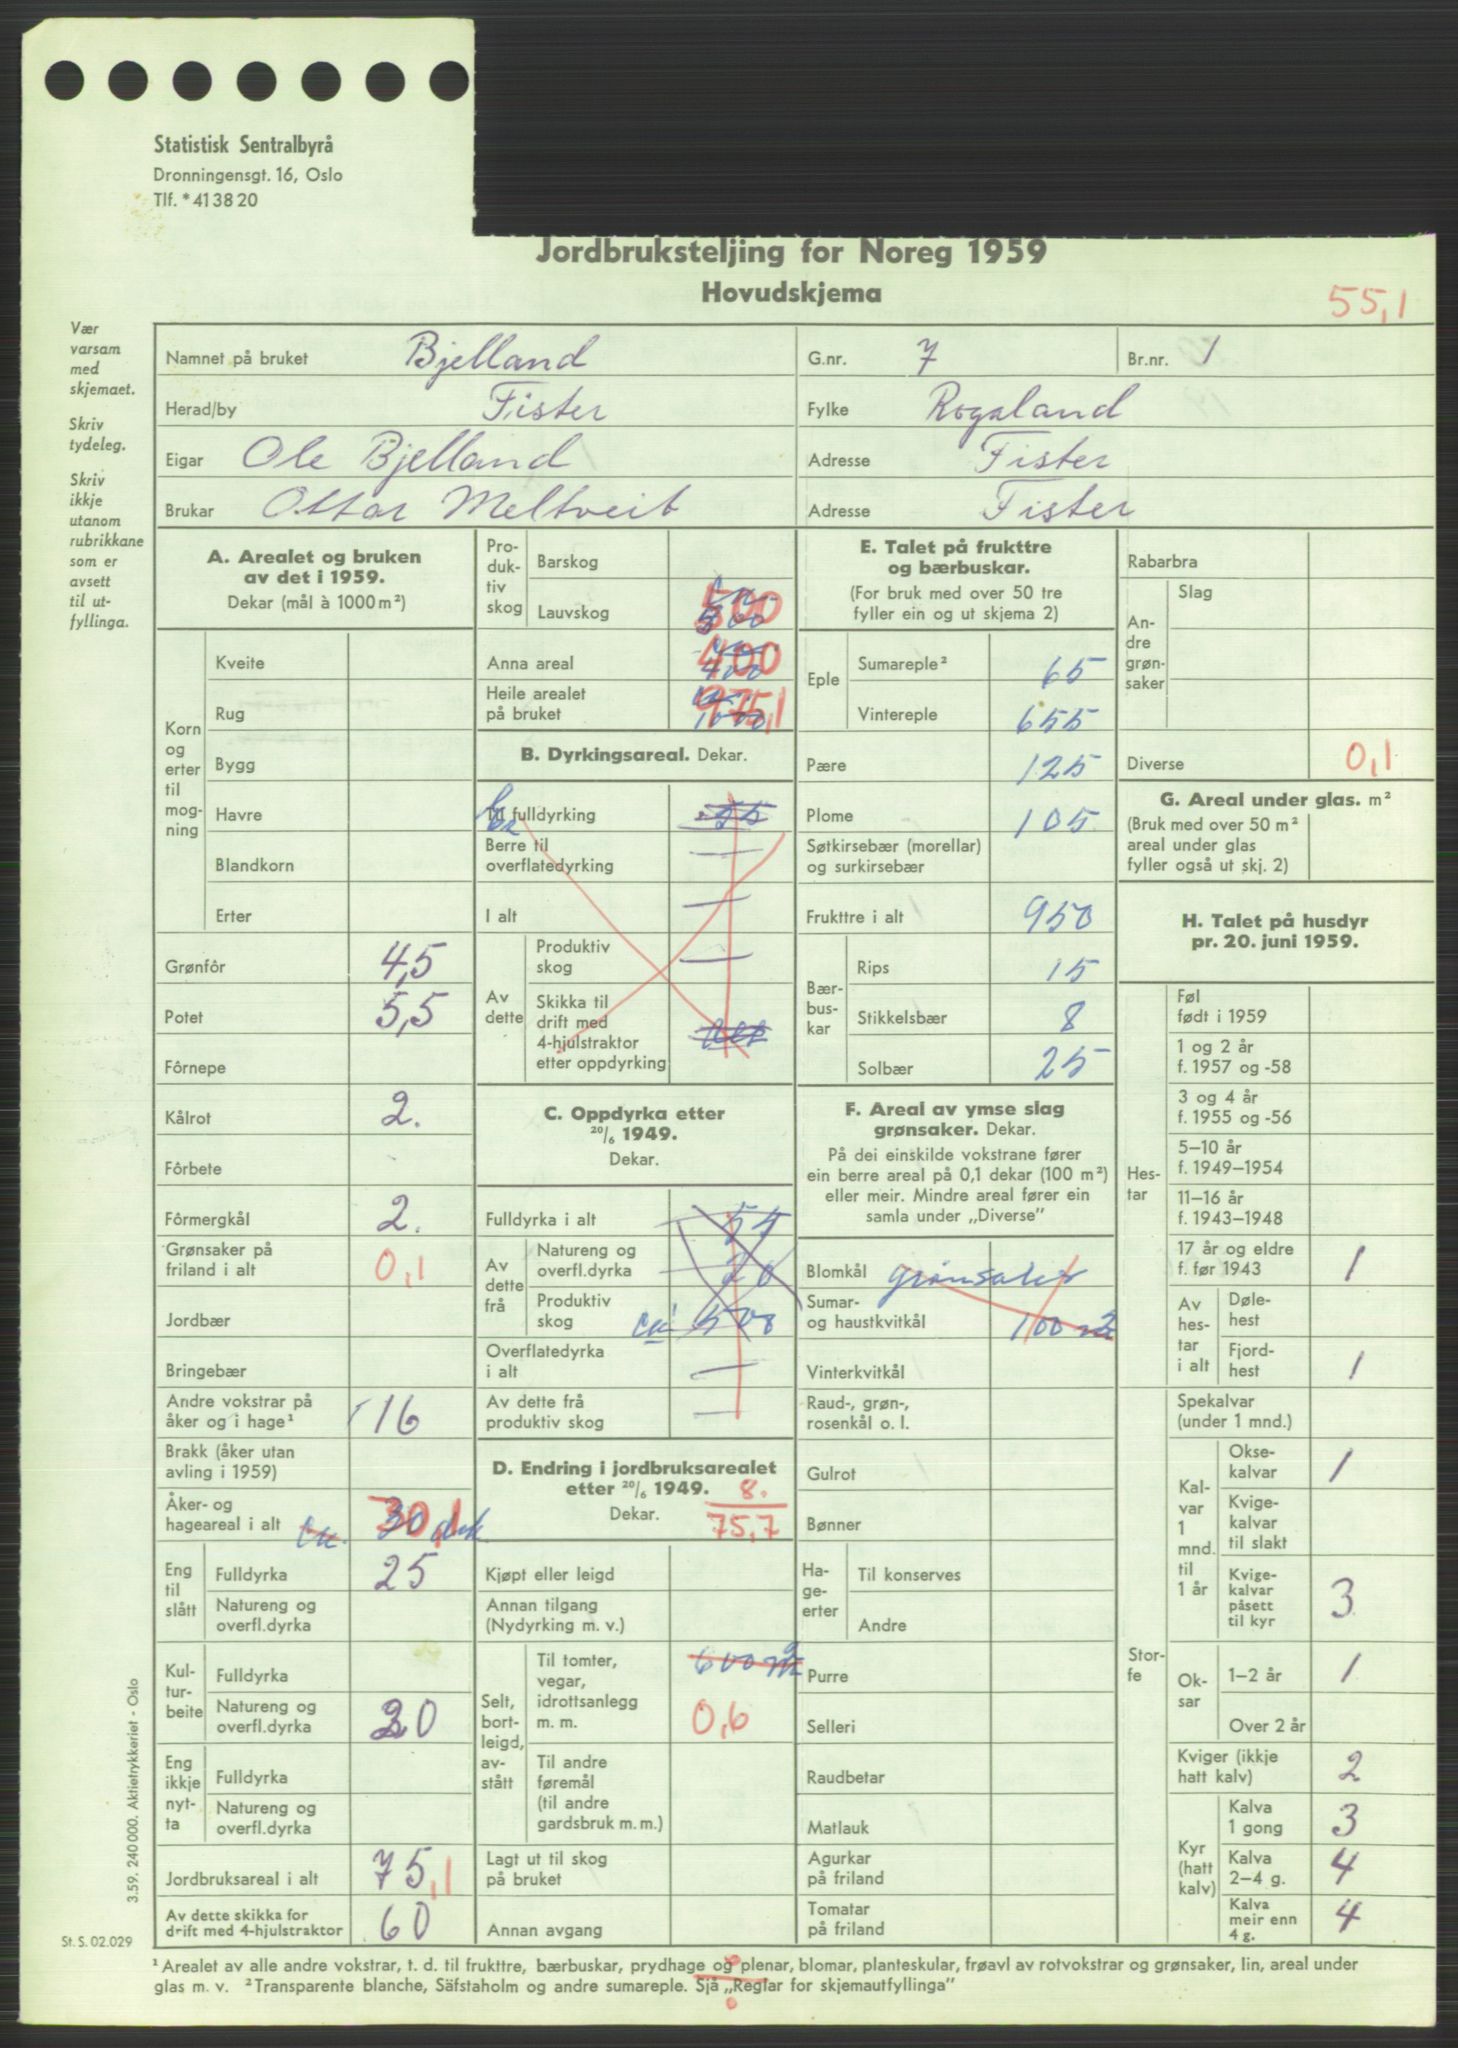 Statistisk Sentralbyrå
Dronningensgt. 16, Oslo
Tlf. *41 38 20
Jordbruksteljing for Noreg 1959
Hovudskjema
55,1
Vær
varsam
med
skjemaet.
Skriv
tydeleg.
Skriv
ikkje
utanom
rubrikkane
som er
avsett
til ut-
fyllinga.
Namnet på bruket Bjelland G.nr. 7 Br.nr. 1
Herad/by Fister Fylke Rogaland
Eigar Ole Bjelland Adresse Fister
Brukar Ottar Meltveit Adresse Fister
A. Arealet og bruken
av det i 1959.
Dekar (mål à 1000 m²)
Korn
og
erter
til
mog-
ning
Kveite
Rug
Bygg
Havre
Blandkorn
Erter
Grønfôr 4,5
Potet 5,5
Fôrnepe
Kålrot 2.
Fôrbete
Fôrmergkål 2.
Grønsaker på
friland i alt 0,1
Jordbær
Bringebær
Andre vokstrar på
åker og i hage¹ 16
Brakk (åker utan
avling i 1959)
Åker- og
hageareal i alt ca. 30,1 dek
Eng
til
slått
Fulldyrka 25
Natureng og
overfl.dyrka
Kul-
tur-
beite
Fulldyrka
Natureng og
overfl.dyrka 20
Eng
ikkje
nyt-
ta
Fulldyrka
Natureng og
overfl.dyrka
Jordbruksareal i alt 75,1
Av dette skikka for
drift med 4-hjulstraktor 60
Pro-
duk-
tiv
skog
Barskog
Lauvskog 500
Anna areal 400
Heile arealet
på bruket 975,1
B. Dyrkingsareal. Dekar.
Til fulldyrking 55
Berre til
overflatedyrking —
I alt —
Av
dette
Produktiv
skog —
Skikka til
drift med
4-hjulstraktor
etter oppdyrking
C. Oppdyrka etter
20/6 1949.
Dekar.
Fulldyrka i alt 55
Av
dette
frå
Natureng og
overfl.dyrka 20
Produktiv
skog ca
Overflatedyrka
i alt —
Av dette frå
produktiv skog —
D. Endring i jordbruksarealet
etter 20/6 1949. 8.
Dekar. 75,7
Kjøpt eller leigd
Annan tilgang
(Nydyrking m. v.)
Selt,
bort-
leigd,
av-
stått
Til tomter,
vegar,
idrottsanlegg
m. m.
600 m²
0,6
Til andre
føremål
(til andre
gardsbruk m. m.)
Lagt ut til skog
på bruket
Annan avgang
E. Talet på frukttre
og bærbuskar.
(For bruk med over 50 tre
fyller ein og ut skjema 2)
Eple
Sumareple² 65
Vintereple 655
Pære 125
Plome 105
Søtkirsebær (morellar)
og surkirsebær
Frukttre i alt 950
Bær-
bus-
kar
Rips 15
Stikkelsbær 8
Solbær 25
F. Areal av ymse slag
grønsaker. Dekar.
På dei einskilde vokstrane fører
ein berre areal på 0,1 dekar (100 m²)
eller meir. Mindre areal fører ein
samla under „Diverse”
Blomkål grønsaker
Sumar-
og haustkvitkål 100 m²
Vinterkvitkål
Raud-, grøn-,
rosenkål o. l.
Gulrot
Bønner
Ha-
ge-
erter
Til konserves
Andre
Purre
Selleri
Raudbetar
Matlauk
Agurkar
på friland
Tomatar
på friland
Rabarbra
An-
dre
grøn-
saker
Slag
Diverse 0,1
G. Areal under glas. m²
(Bruk med over 50 m²
areal under glas
fyller også ut skj. 2)
H. Talet på husdyr
pr. 20. juni 1959.
Hes-
tar
Føl
født i 1959
1 og 2 år
f. 1957 og -58
3 og 4 år
f. 1955 og -56
5–10 år
f. 1949–1954
11–16 år
f. 1943–1948
17 år og eldre
f. før 1943 1
Av
hes-
tar
i alt
Døle-
hest
Fjord-
hest 1
Stor-
fe
Spekalvar
(under 1 mnd.)
Kal-
var
1
mnd.
til
1 år
Okse-
kalvar 1
Kvige-
kalvar
til slakt
Kvige-
kalvar
påsett
til kyr 3
Ok-
sar
1–2 år 1
Over 2 år
Kviger (ikkje
hatt kalv) 2
Kyr
(hatt
kalv)
Kalva
1 gong 3
Kalva
2–4 g. 4
Kalva
meir enn
4 g. 4
3.59. 240 000. Aktietrykkeriet - Oslo
St. S. 02.029
¹ Arealet av alle andre vokstrar, t. d. til frukttre, bærbuskar, prydhage og plenar, blomar, planteskular, frøavl av rotvokstrar og grønsaker, lin, areal under
glas m. v. ² Transparente blanche, Säfstaholm og andre sumareple. Sjå „Reglar for skjemautfyllinga”